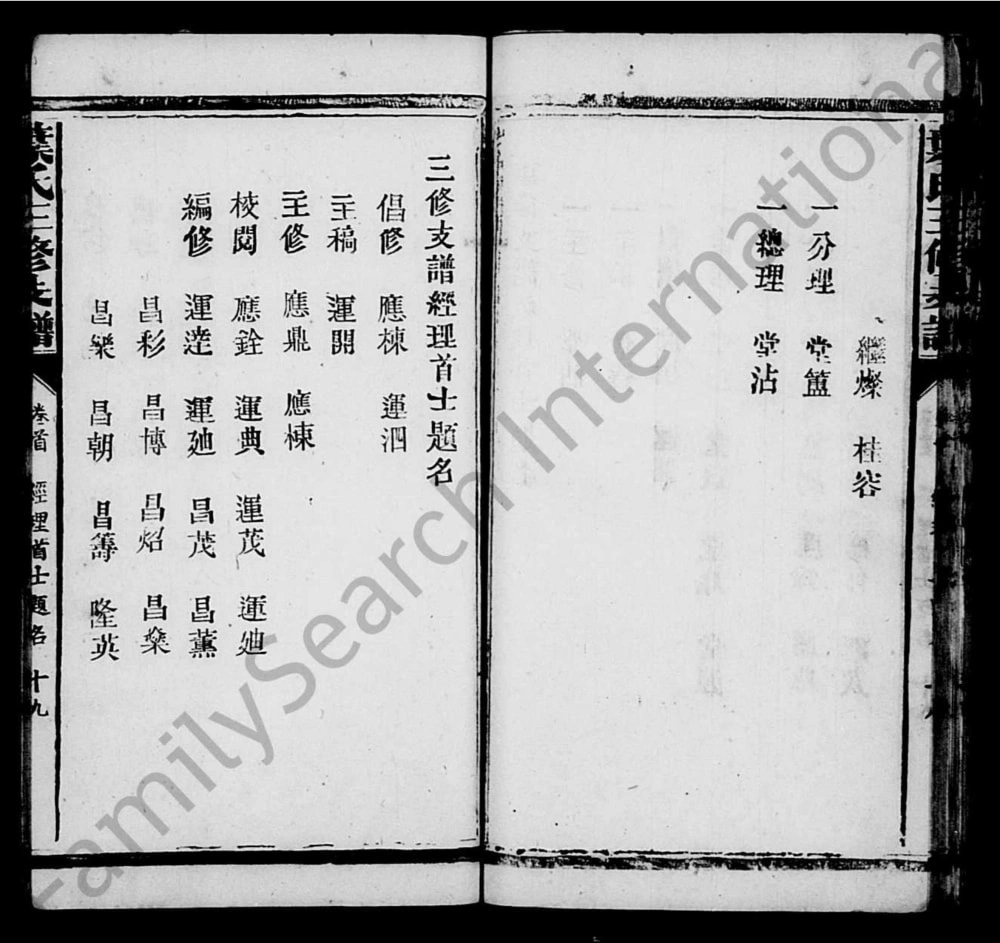 葉氏三修支譜
繼燦 桂容
一分理 堂簠
一總理 堂沾
三修支譜經理首士題名
倡修 應棟 運泗
主稿 運開
主修 應鼎 應棟
校閱 應銓 運典 運茂 運廸
編修 運逹 運廸 昌茂 昌薰
昌彩 昌博 昌炤 昌燊
昌樂 昌朝 昌籌 隆英
葉氏三修支譜 卷首 經理首士題名 十九
FamilySearch International